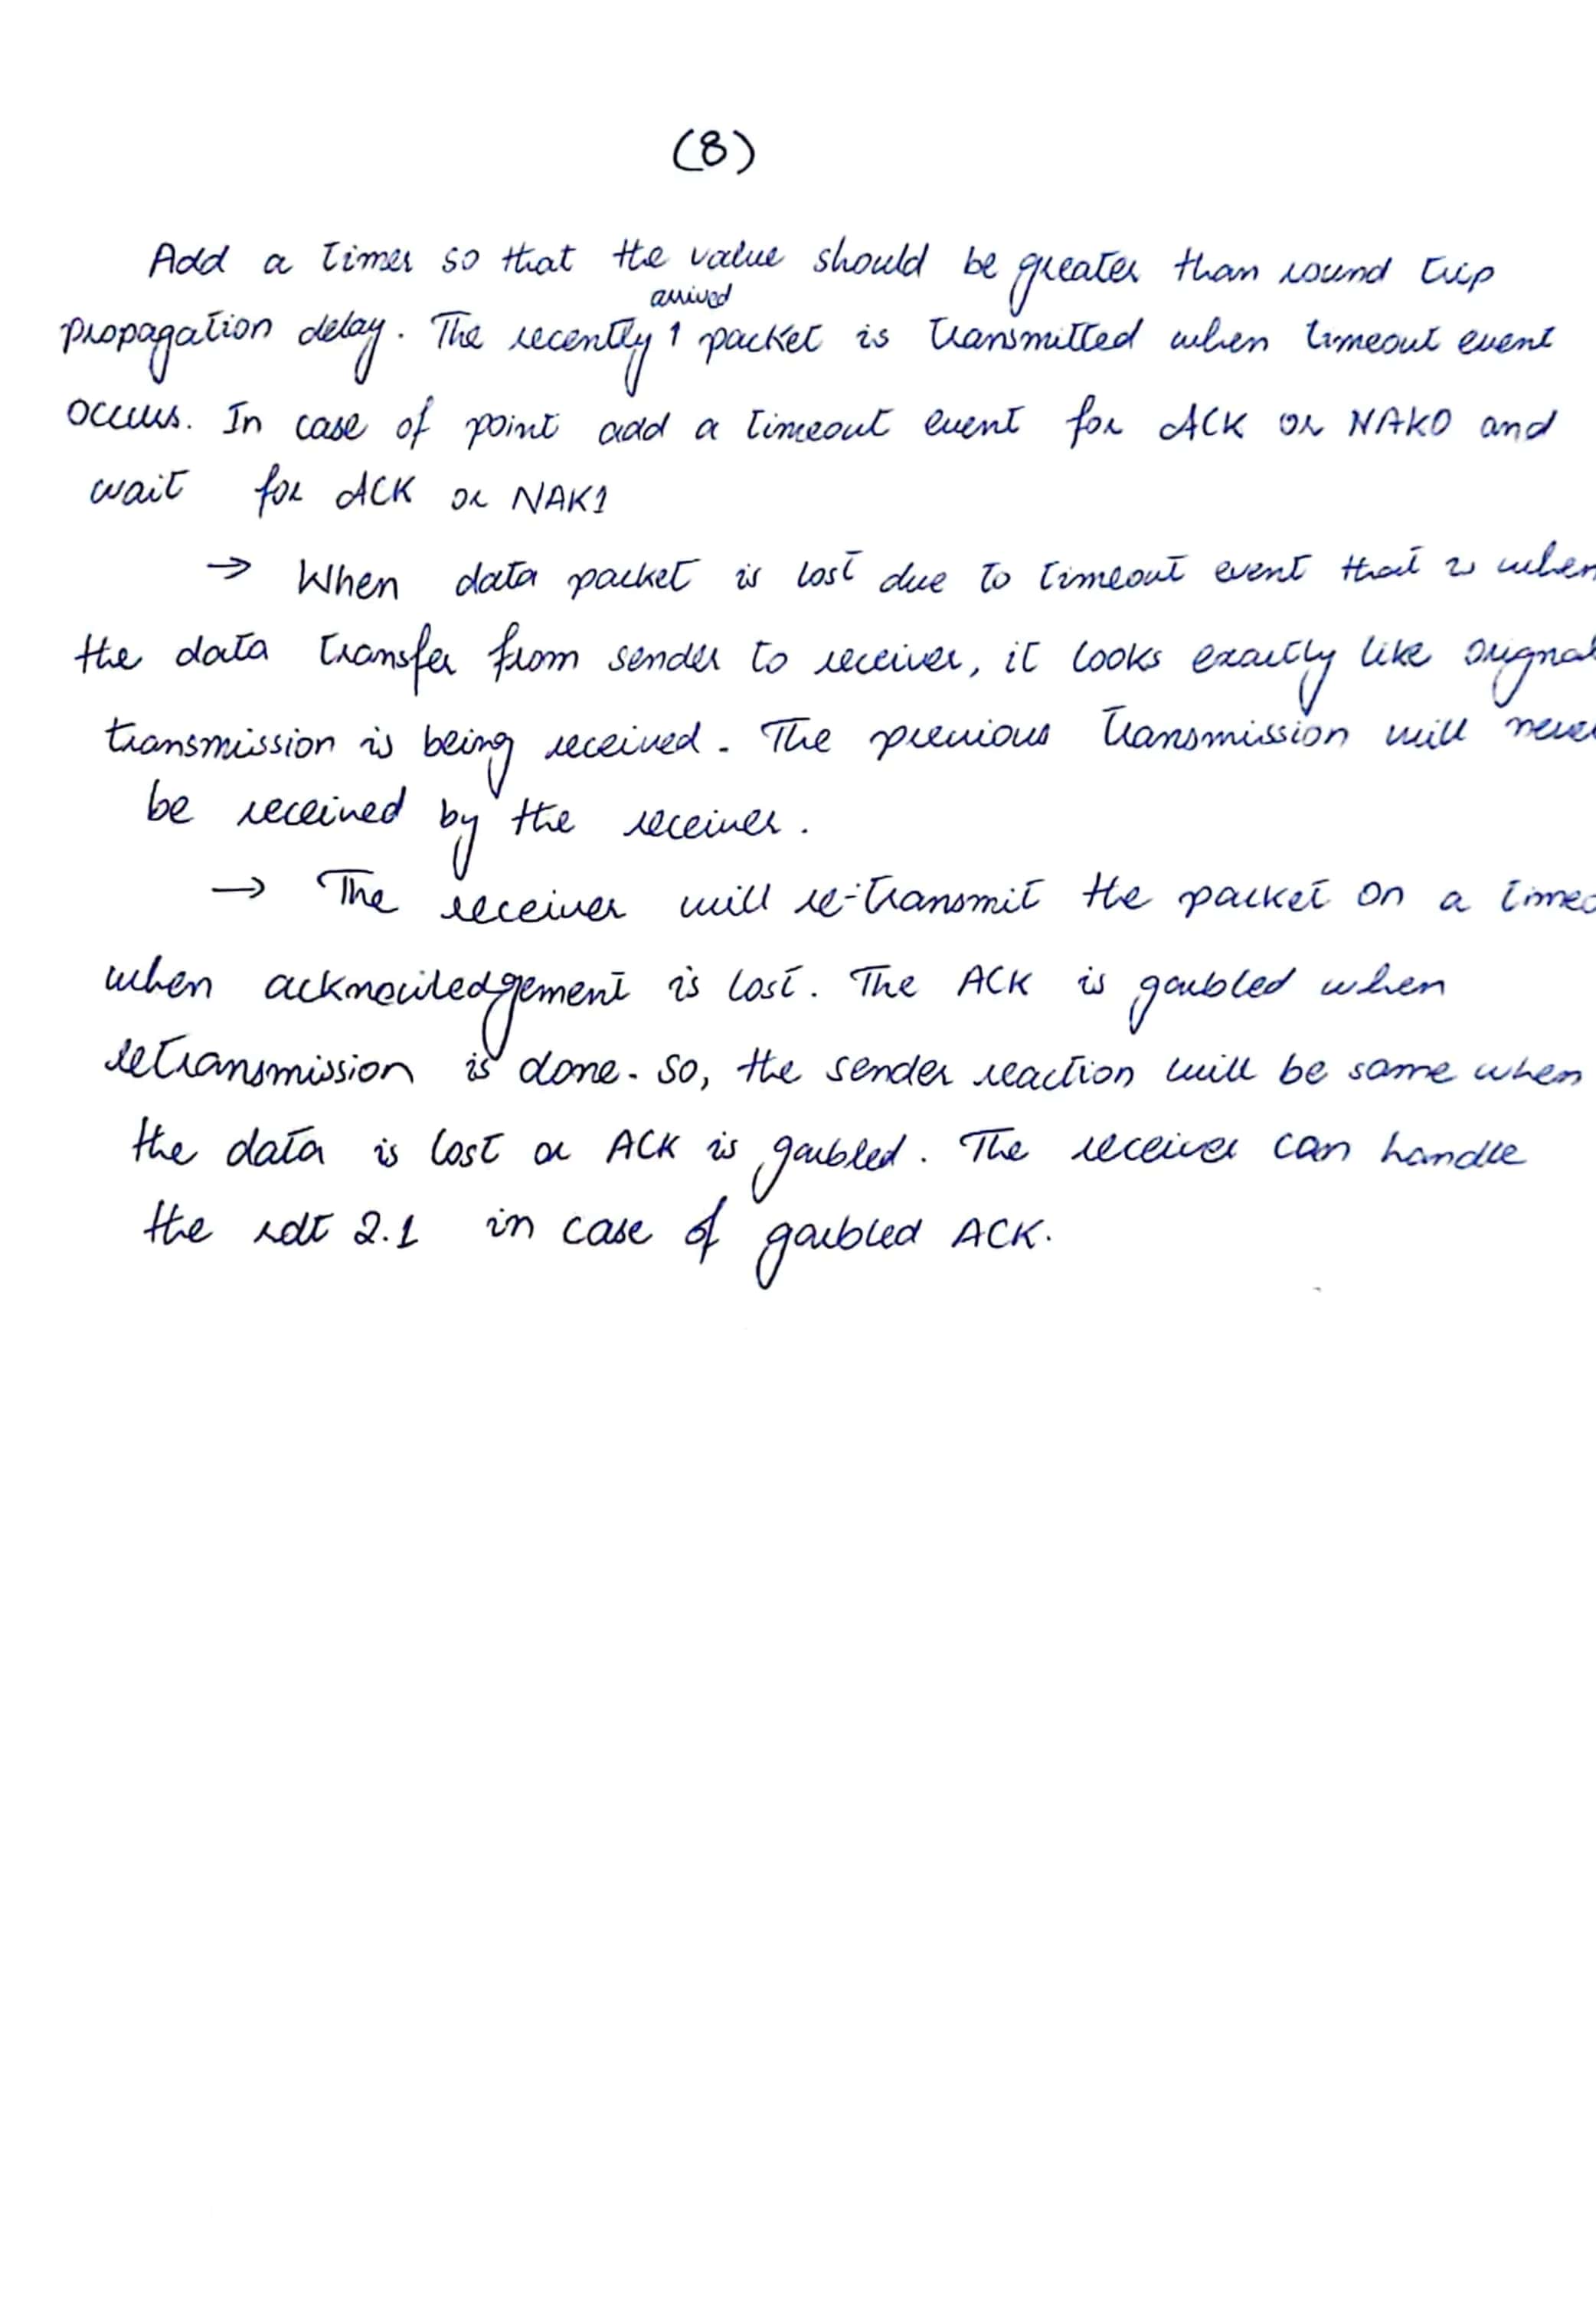 (8)
Add a timer so that the value should be greater than round trip
propagation delay. The recently ↑ arrived packet is transmitted when timeout event
occurs. In case of point add a timeout event for ACK or NAK0 and
wait for ACK or NAK1
→ When data packet is lost due to timeout event that is when
the data transfer from sender to receiver, it looks exactly like orignal
transmission is being received. The previous transmission will never
be received by the receiver.
→ The receiver will re-transmit the packet on a
when acknowledgement is lost. The ACK is garbled when
retransmission is done. So, the sender reaction will be same when
the data is lost or ACK is garbled. The receiver can handle
the rdt 2.1 in case of garbled ACK.